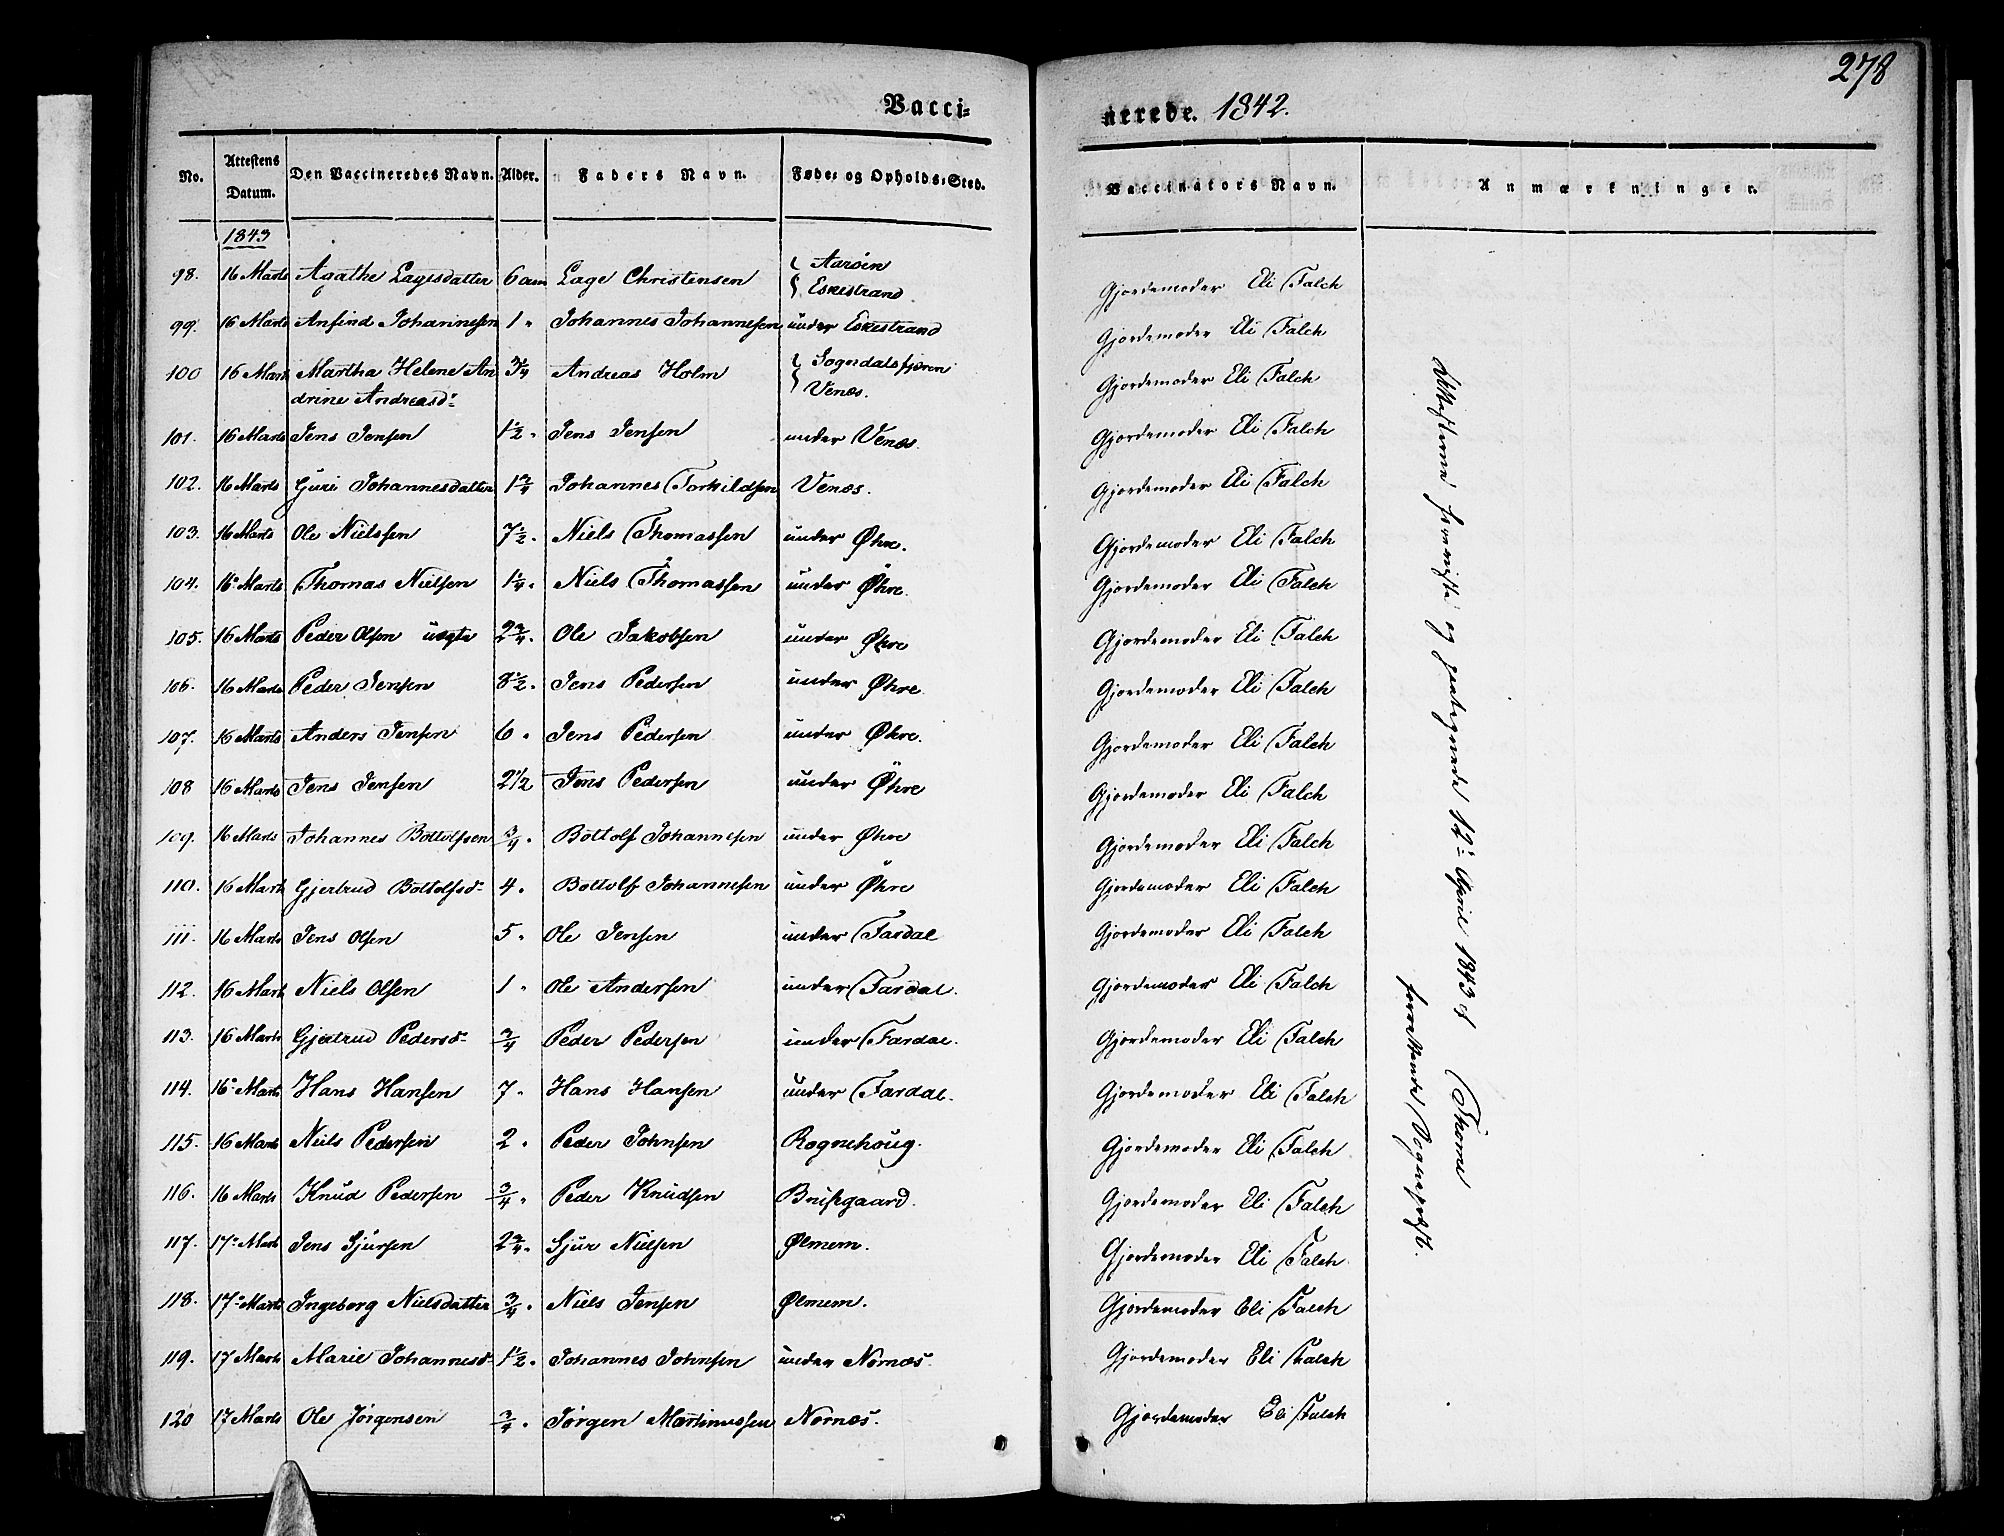 278
Vacci- nerede. 1842.
No. Attestens Datum. Den Vaccineredes Navn. Alder. Faders Navn. Føde- og Opholds-Sted. Vaccinators Navn. Anmærkninger.
1843
98. 16 Marts Agathe Lagesdatter 6 aar Lage Christensen { Aarøen { Eskestrand. Gjordemoder Eli Falch
99. 16 Marts Anfind Johannesen 1 " Johannes Johannesen under Eskestrand Gjordemoder Eli Falch
100 16 Marts Martha Helene An 3/4 Andreas Holm { Sogndalsfjæren { Venæs. Gjordemoder Eli Falch
drine Andreasd:
101. 16 Marts Jens Jensen 1 1/2 " Jens Jensen under Venæs. Gjordemoder Eli Falch
102. 16 Marts Guri Johannesdatter 1 3/4 Johannes Torkildsen Venæs. Gjordemoder Eli Falch
103. 16 Marts Ole Nielssen 7 1/2 " Niels Thomassen under Øhre. Gjordemoder Eli Falch
104. 16 Marts Thomas Nielsen 1 1/4 " Niels Thomassen under Øhre. Gjordemoder Eli Falch
105. 16 Marts Peder Olsen uægte 2 3/4 " Ole Jakobsen under Øhre Gjordemoder Eli Falch
106. 16 Marts Peder Jensen 8 1/2 " Jens Pedersen under Øhre. Gjordemoder Eli Falch
107. 16 Marts Anders Jensen 6 " Jens Pedersen under Øhre. Gjordemoder Eli Falch
108 16 Marts Jens Jensen 2 1/2 Jens Pedersen under Øhre Gjordemoder Eli Falch
109. 16 Marts Johannes Bottolfsen 3/4 " Bottolf Johannesen under Øhre Gjordemoder Eli Falch
110. 16 Marts Gjertrud Bottolfsd: 4 " Bottolf Johannesen under Øhre Gjordemoder Eli Falch
111. 16 Marts Jens Olsen 5 " Ole Jensen under Fardal Gjordemoder Eli Falch
112. 16 Marts Niels Olsen 1 " Ole Andersen under Fardal. Gjordemoder Eli Falch
113. 16 Marts Gjertrud Pedersd: 3/4 Peder Pedersen under Fardal. Gjordemoder Eli Falch
114. 16 Marts Hans Hansen 7 " Hans Hansen under Fardal. Gjordemoder Eli Falch
115. 16 Marts Niels Pedersen 2 " Peder Johnsen Rognehoug. Gjordemoder Eli Falch
116. 16 Marts Knud Pedersen 3/4 " Peder Knudsen Bruisgaard. Gjordemoder Eli Falch
117. 17 Marts Jens Sjursen 2 3/4 " Sjur Nielsen Ølmem. Gjordemoder Eli Falch.
118. 17 Marts Ingeborg Nielsdatter 3/4 " Niels Jensen Ølmem. Gjordemoder Eli Falch
119. 17 Marts Marie Johannesd: 1 1/2 " Johannes Johnsen under Nornæs. Gjordemoder Eli Falch
120 17 Marts Ole Jørgensen 3/4 " Jørgen Martinussen Nornæs. Gjordemoder Eli Falch
Attesterne foreviste og paategnede 12: April 1843 af Thorne
Sogneprest.